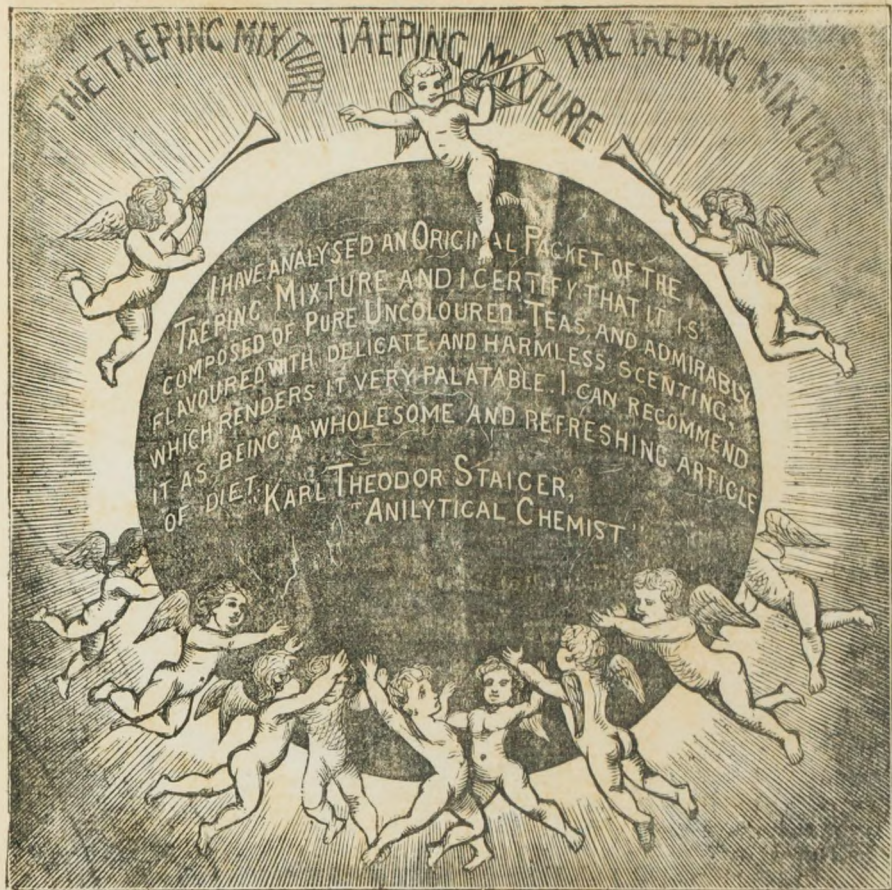 THE TAEPING MIXTURE
TAEPING MIXTURE
THE TAEPING MIXTURE
I HAVE ANALYSED AN ORIGINAL PACKET OF THE
TAEPING MIXTURE AND I CERTIFY THAT IT IS
COMPOSED OF PURE UNCOLOURED TEAS, AND ADMIRABLY
FLAVOURED WITH DELICATE AND HARMLESS SCENTING,
WHICH RENDERS IT VERY PALATABLE. I CAN RECOMMEND
IT AS BEING A WHOLESOME AND REFRESHING ARTICLE
OF DIET. KARL THEODOR STAICER,
"ANILYTICAL CHEMIST"